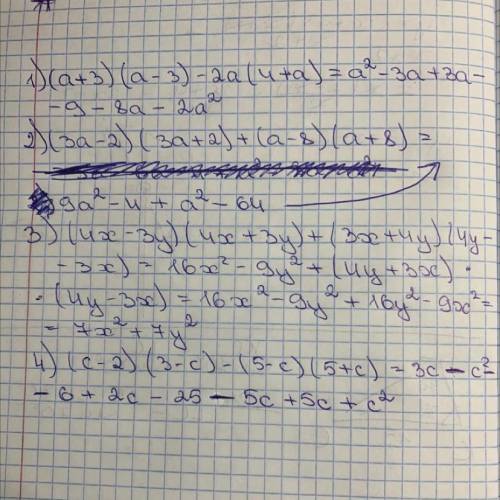 1) (a+3)(a-3)-2a(4+a) = a²-3a+3a-
-9-8a-2a²
2) (3a-2)(3a+2)+(a-8)(a+8) =
9a²-4+a²-64
3) (4x-3y)(4x+3y)+(3x+4y)(4y-
-3x) = 16x²-9y²+(4y+3x)·
·(4y-3x) = 16x²-9y²+16y²-9x²=
= 7x²+7y²
4) (c-2)(3-c)-(5-c)(5+c) = 3c-c²-
-6+2c-25-5c+5c+c²